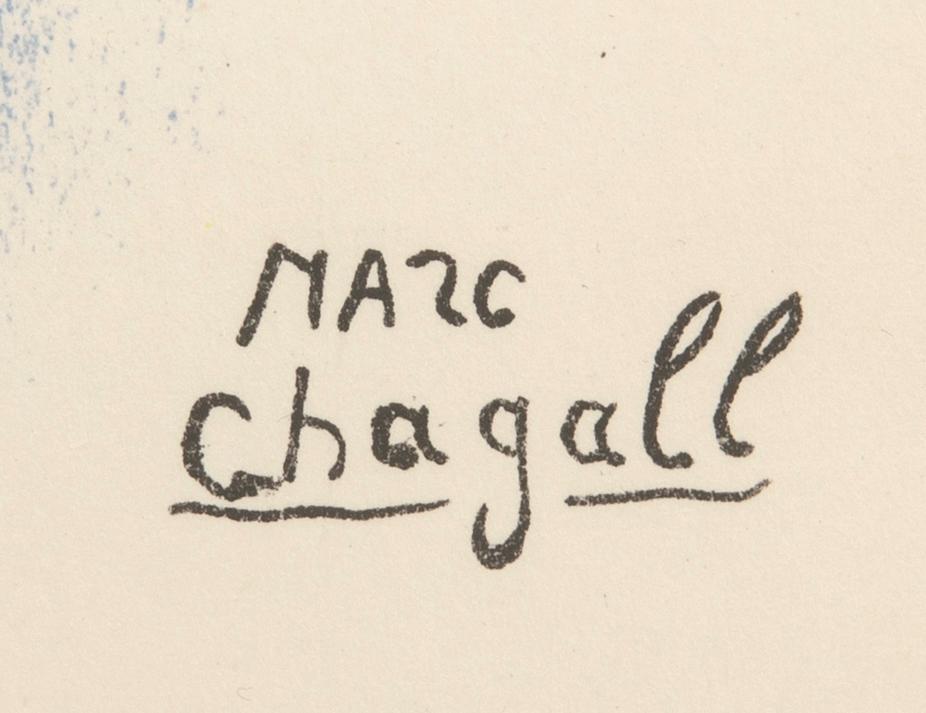 MARC
Chagall